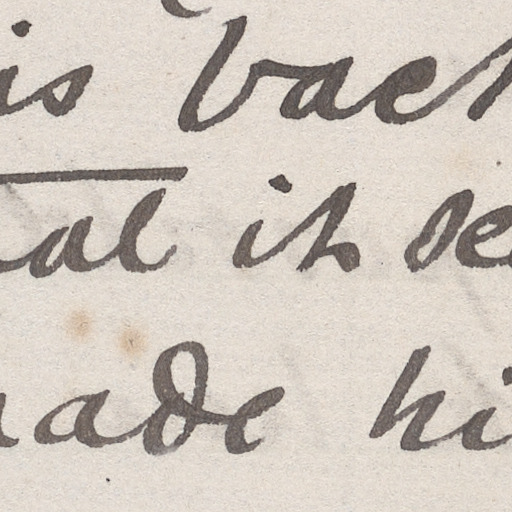 is back
al it se
ade hi